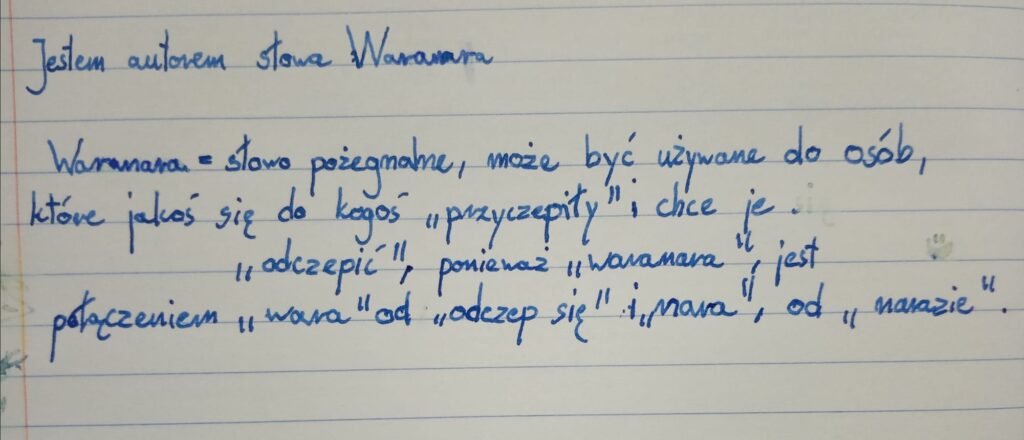 Jestem autorem słowa Waranara
Waranara = słowo pożegnalne, może być używane do osób,
które jakoś się do kogoś „przyczepiły" i chce je.
„odczepić", ponieważ „waranara", jest
połączeniem „wara" od „odczep się" i „nara", od „narazie".